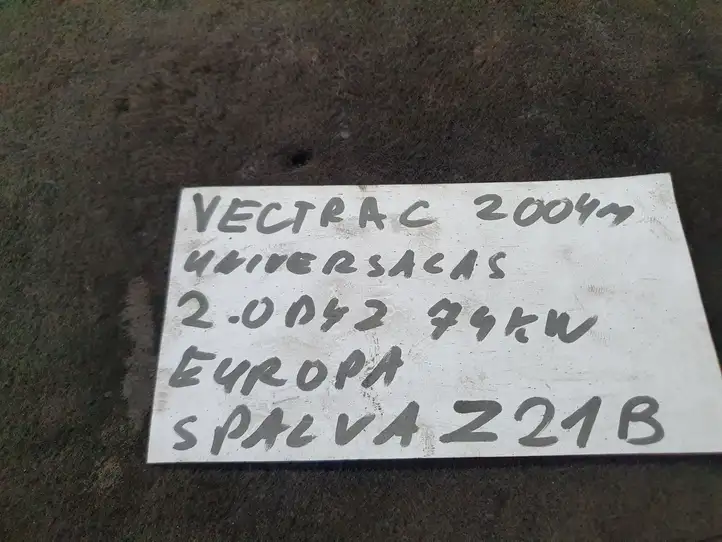 VECTRA C 2004m
UNIVERSALAS
2.0DYZ 74KW
EUROPA
SPALVA Z21B